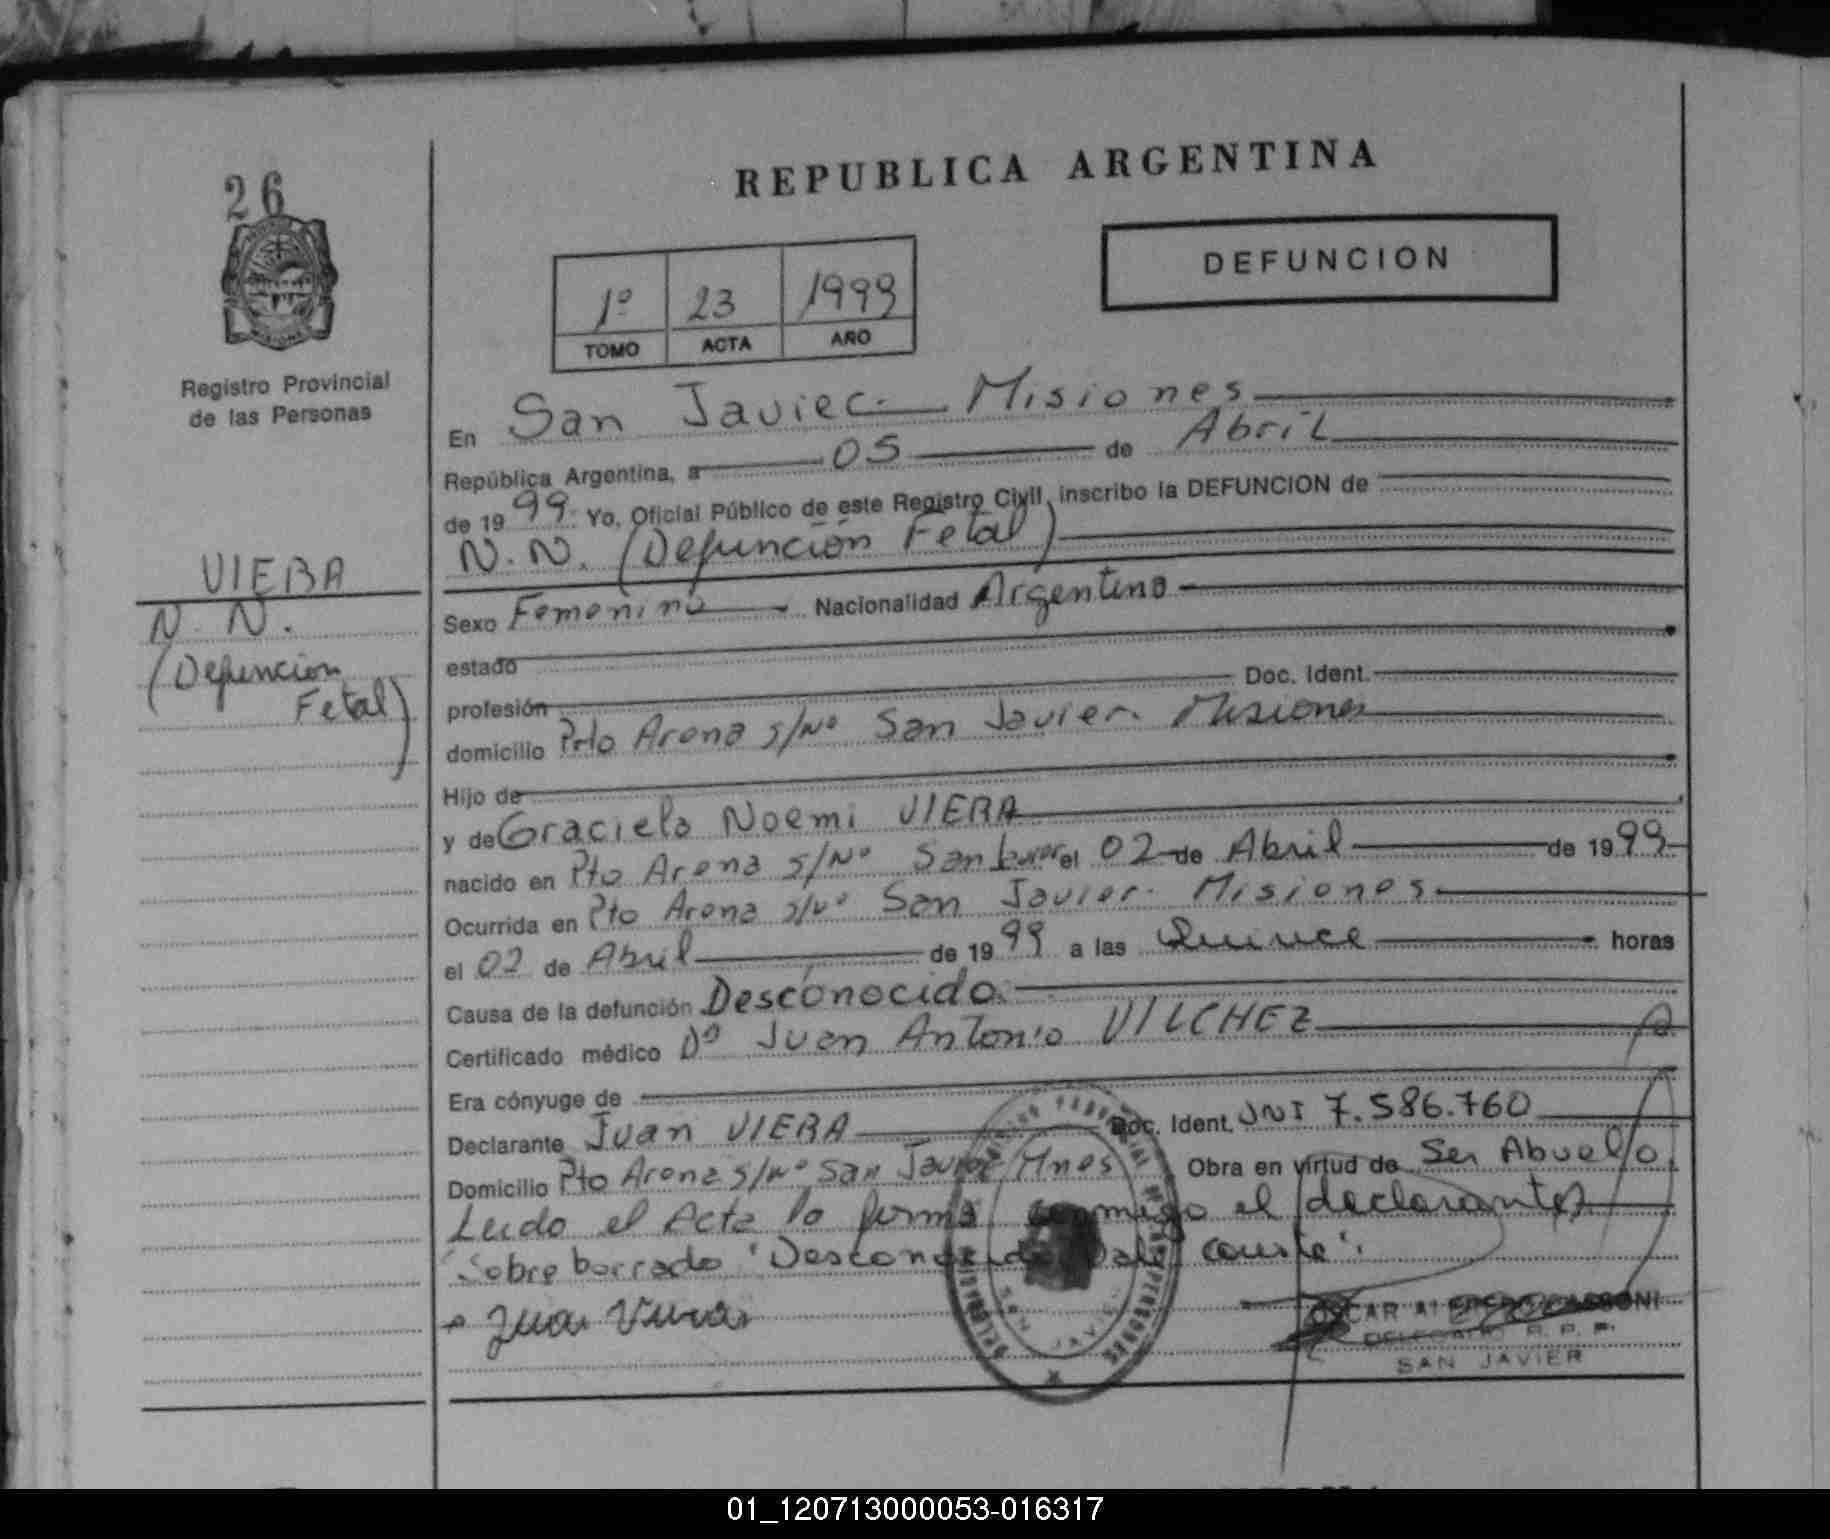 26
REPUBLICA ARGENTINA
DEFUNCION
1º 23 1999
TOMO ACTA AÑO
Registro Provincial
de las Personas
VIERA
N. N.
(Defunción
Fetal)
En San Javier. Misiones
República Argentina, a 05 de Abril
de 1999. Yo, Oficial Público de este Registro Civil, inscribo la DEFUNCION de
N. N. (Defunción Fetal)
Sexo Femenino Nacionalidad Argentina
estado
profesión Doc. Ident.
domicilio Pto Arena s/Nº San Javier Misiones
Hijo de
y de Graciela Noemi VIERA
nacido en Pto Arena s/Nº San Javier el 02 de Abril de 1999
Ocurrida en Pto Arena s/Nº San Javier. Misiones
el 02 de Abril de 1999 a las Quince horas
Causa de la defunción Desconocido.
Certificado médico Dº Juan Antonio VILCHEZ
Era cónyuge de
Declarante Juan VIERA Doc. Ident. DNI 7.586.760
Domicilio Pto Arena s/Nº San Javier Mnes Obra en virtud de Ser Abuelo.
Leido el Acta la firma conmigo el declarante
Sobre borrado "Desconocido Vale conste".
Juan Viera
OSCAR
DELEGADO R. P. P.
SAN JAVIER
01_120713000053-016317